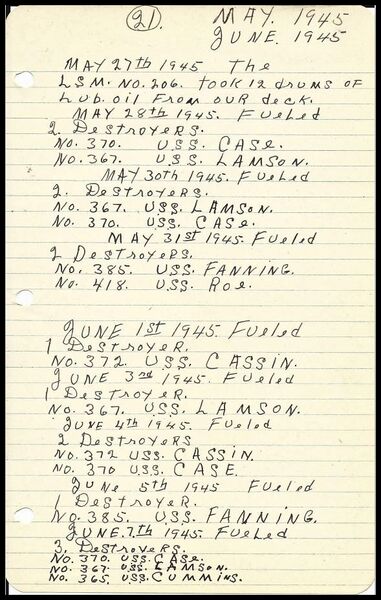 (21). MAY. 1945
JUNE. 1945
MAY 27th 1945 The
LSM. No. 206. Took 12 drums of
Lub. oil From our deck.
MAY 28th 1945. Fueled
2. Destroyers.
No. 370. USS. CASE.
No. 367. USS. LAMSON.
MAY 30th 1945. Fueled
2. Destroyers.
No. 367. USS. LAMSON.
No. 370. USS. CASE.
MAY 31st 1945. Fueled
2 Destroyers.
No. 385. USS. FANNING.
No. 418. USS. Roe.
JUNE 1st 1945. Fueled
1 Destroyer.
No. 372. USS. CASSIN.
JUNE 3rd 1945. Fueled
1 Destroyer.
No. 367. USS. LAMSON.
JUNE 4th 1945. Fueled
2 Destroyers
No. 372 USS. CASSIN.
No. 370 USS. CASE.
June 5th 1945 Fueled
1 Destroyer.
No. 385. USS. FANNING.
JUNE. 7th 1945. Fueled
3. Destroyers.
No. 370. USS. CASE.
No. 367. USS. LAMSON.
No. 365. USS. CUMMINS.